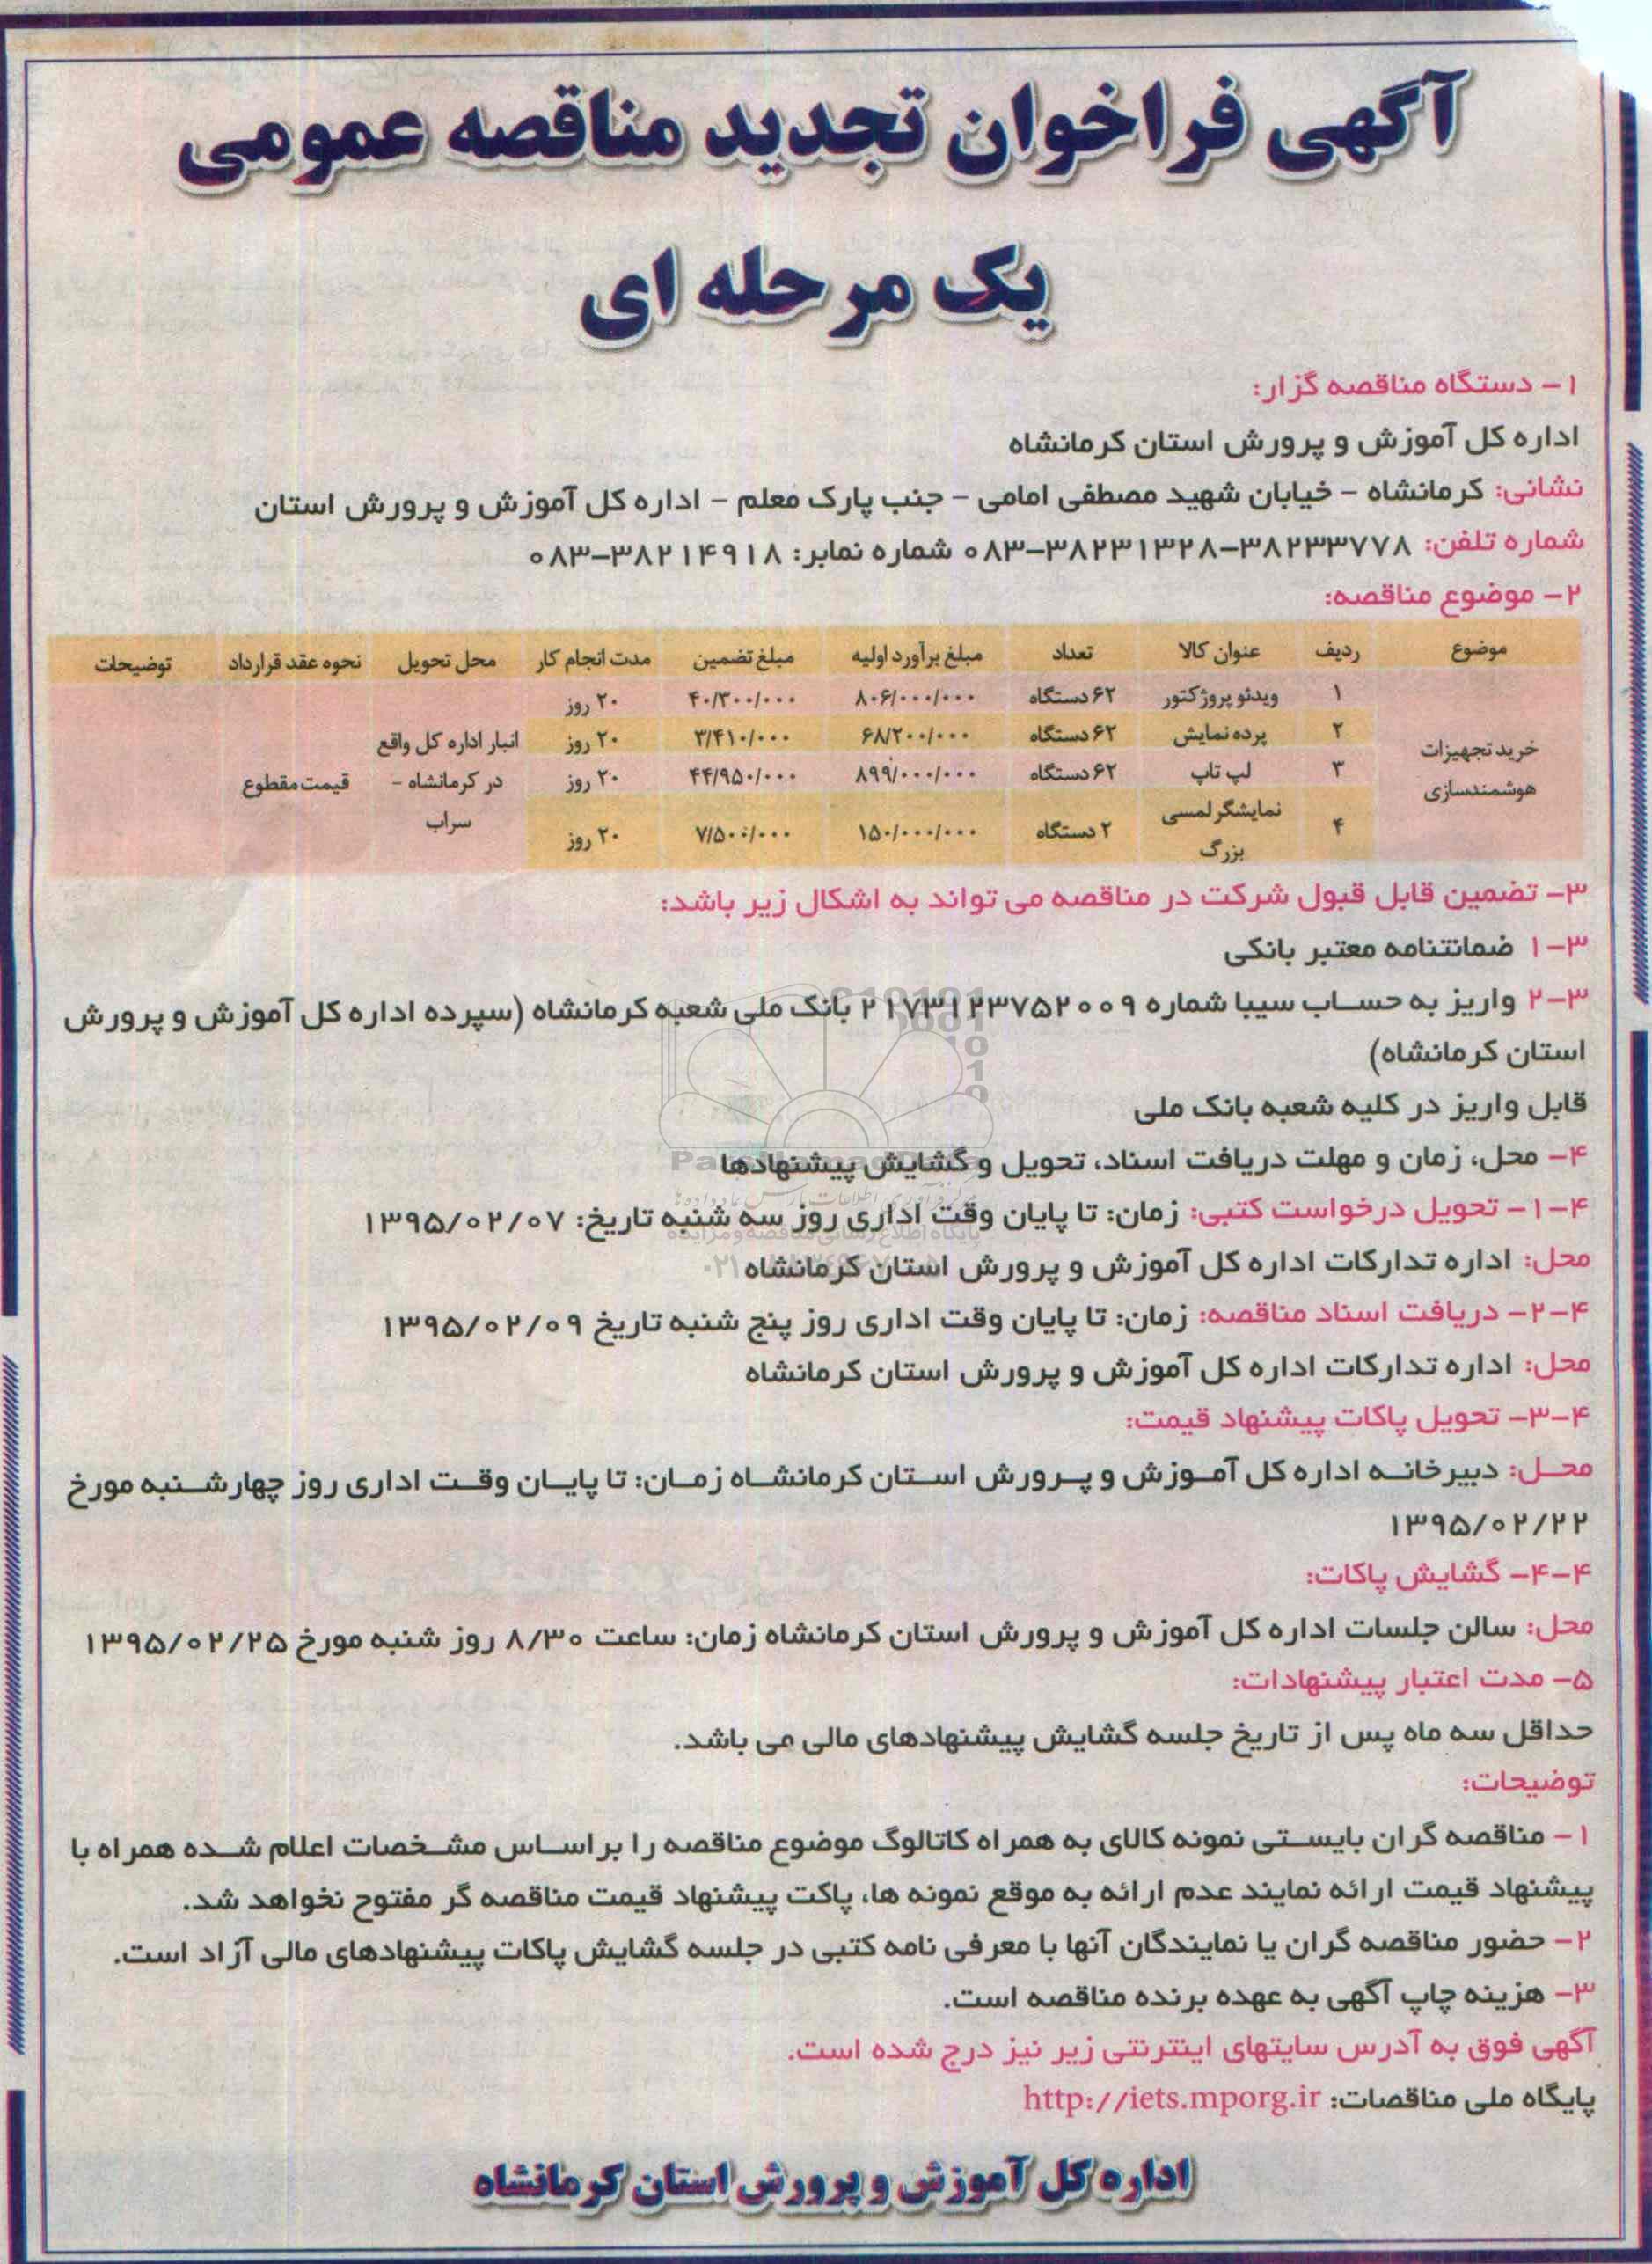 آگهی فراخوان تجدید مناقصه عمومی
یک مرحله ای
۱- دستگاه مناقصه گزار:
اداره کل آموزش و پرورش استان کرمانشاه
نشانی: کرمانشاه - خیابان شهید مصطفی امامی - جنب پارک معلم - اداره کل آموزش و پرورش استان
شماره تلفن: ۳۸۲۳۳۷۷۸-۳۸۲۳۱۳۲۸-۰۸۳ شماره نمابر: ۳۸۲۱۴۹۱۸-۰۸۳
۲- موضوع مناقصه:
موضوع ردیف عنوان کالا تعداد مبلغ برآورد اولیه مبلغ تضمین مدت انجام کار محل تحویل نحوه عقد قرارداد توضیحات
خرید تجهیزات هوشمندسازی
۱ ویدئو پروژکتور ۶۲ دستگاه ۸۰۶/۰۰۰/۰۰۰ ۴۰/۳۰۰/۰۰۰ ۲۰ روز
۲ پرده نمایش ۶۲ دستگاه ۶۸/۲۰۰/۰۰۰ ۳/۴۱۰/۰۰۰ ۲۰ روز
۳ لپ تاپ ۶۲ دستگاه ۸۹۹/۰۰۰/۰۰۰ ۴۴/۹۵۰/۰۰۰ ۲۰ روز
۴ نمایشگر لمسی بزرگ ۲ دستگاه ۱۵۰/۰۰۰/۰۰۰ ۷/۵۰۰/۰۰۰ ۲۰ روز
انبار اداره کل واقع در کرمانشاه - سراب
قیمت مقطوع
۳- تضمین قابل قبول شرکت در مناقصه می تواند به اشکال زیر باشد:
۳-۱ ضمانتنامه معتبر بانکی
۳-۲ واریز به حساب سیبا شماره ۲۱۷۳۱۲۳۷۵۲۰۰۹ بانک ملی شعبه کرمانشاه (سپرده اداره کل آموزش و پرورش
استان کرمانشاه)
قابل واریز در کلیه شعبه بانک ملی
۴- محل، زمان و مهلت دریافت اسناد، تحویل و گشایش پیشنهادها
۴-۱- تحویل درخواست کتبی: زمان: تا پایان وقت اداری روز سه شنبه تاریخ: ۱۳۹۵/۰۲/۰۷
محل: اداره تدارکات اداره کل آموزش و پرورش استان کرمانشاه
۴-۲- دریافت اسناد مناقصه: زمان: تا پایان وقت اداری روز پنج شنبه تاریخ ۱۳۹۵/۰۲/۰۹
محل: اداره تدارکات اداره کل آموزش و پرورش استان کرمانشاه
۴-۳- تحویل پاکات پیشنهاد قیمت:
محل: دبیرخانه اداره کل آموزش و پرورش استان کرمانشاه زمان: تا پایان وقت اداری روز چهارشنبه مورخ
۱۳۹۵/۰۲/۲۲
۴-۴- گشایش پاکات:
محل: سالن جلسات اداره کل آموزش و پرورش استان کرمانشاه زمان: ساعت ۸/۳۰ روز شنبه مورخ ۱۳۹۵/۰۲/۲۵
۵- مدت اعتبار پیشنهادات:
حداقل سه ماه پس از تاریخ جلسه گشایش پیشنهادهای مالی می باشد.
توضیحات:
۱- مناقصه گران بایستی نمونه کالای به همراه کاتالوگ موضوع مناقصه را براساس مشخصات اعلام شده همراه با
پیشنهاد قیمت ارائه نمایند عدم ارائه به موقع نمونه ها، پاکت پیشنهاد قیمت مناقصه گر مفتوح نخواهد شد.
۲- حضور مناقصه گران یا نمایندگان آنها با معرفی نامه کتبی در جلسه گشایش پاکات پیشنهادهای مالی آزاد است.
۳- هزینه چاپ آگهی به عهده برنده مناقصه است.
آگهی فوق به آدرس سایتهای اینترنتی زیر نیز درج شده است.
پایگاه ملی مناقصات: http://iets.mporg.ir
اداره کل آموزش و پرورش استان کرمانشاه